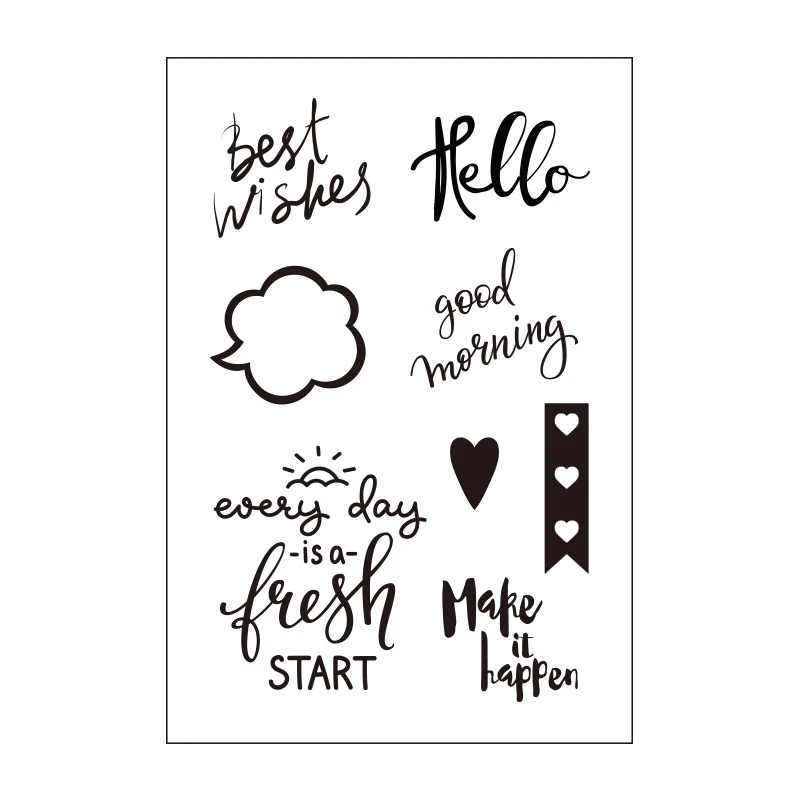 Best
wishes
Hello
good
morning
every day
-is a-
fresh
START
Make
it
happen